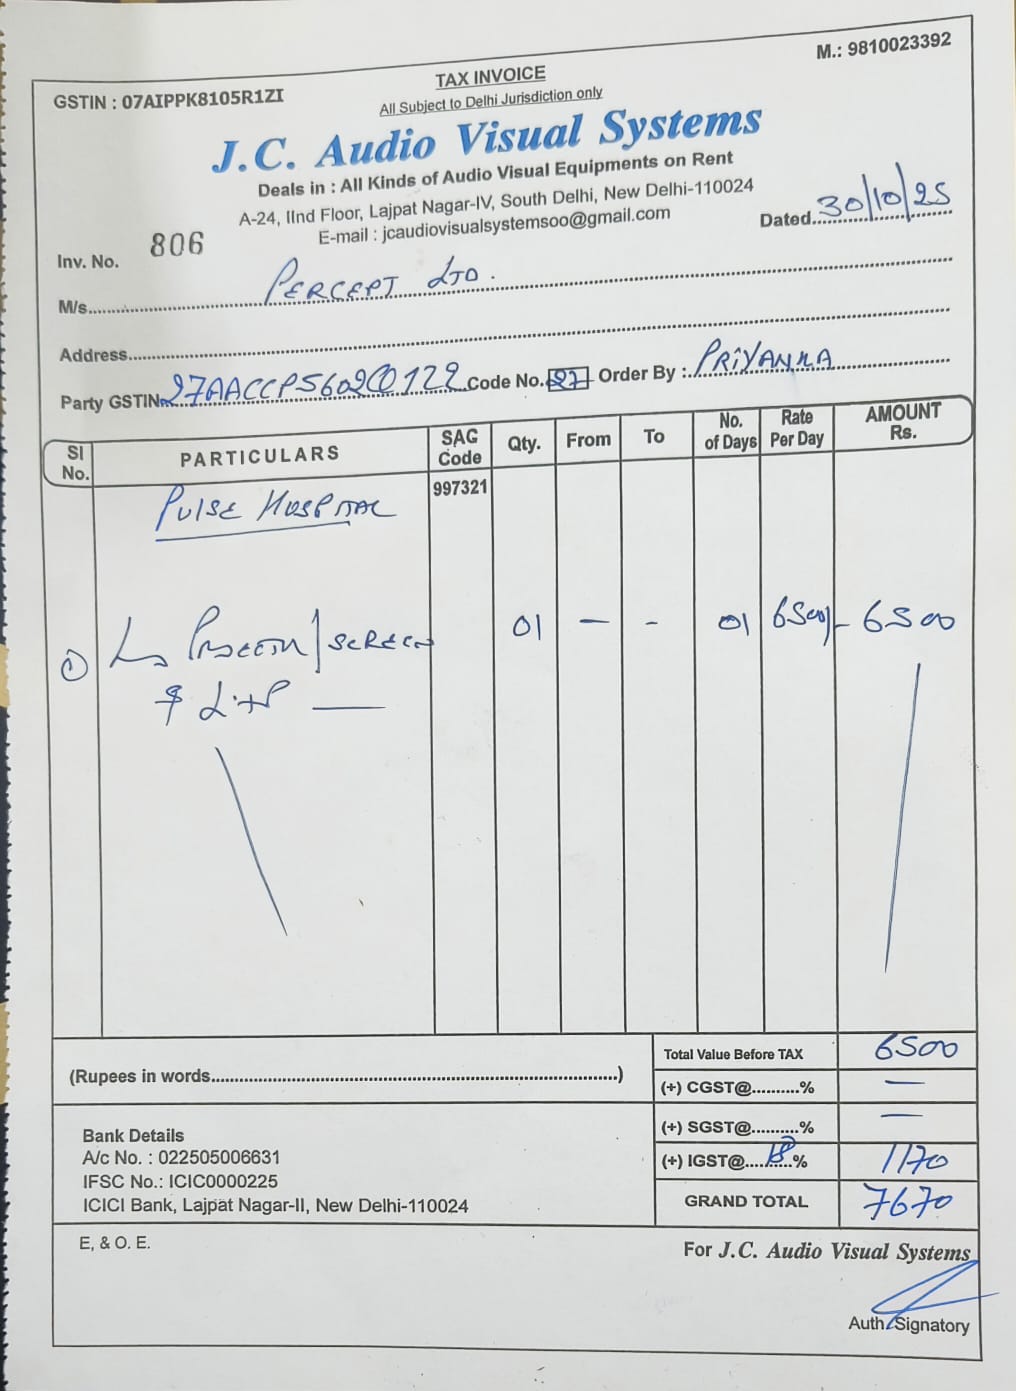 M.: 9810023392
GSTIN : 07AIPPK8105R1ZI
TAX INVOICE
All Subject to Delhi Jurisdiction only
J.C. Audio Visual Systems
Deals in : All Kinds of Audio Visual Equipments on Rent
A-24, IInd Floor, Lajpat Nagar-IV, South Delhi, New Delhi-110024
E-mail : jcaudiovisualsystemsoo@gmail.com
Dated. 30/10/25
Inv. No. 806
M/s. PERCEPT LTD.
Address
Party GSTIN 27AACCP5602Q1ZZ Code No. 27 Order By : PRIYANKA
Sl No. PARTICULARS SAG Code Qty. From To No. of Days Rate Per Day AMOUNT Rs.
997321
PULSE HOSPITAL
① SCREEN 01 — - 01 6500/- 6500
Total Value Before TAX 6500
(Rupees in words)
(+) CGST@..........% —
(+) SGST@..........% —
Bank Details
A/c No. : 022505006631
(+) IGST@ 18 % 1170
IFSC No.: ICIC0000225
ICICI Bank, Lajpat Nagar-II, New Delhi-110024
GRAND TOTAL 7670
E, & O. E.
For J.C. Audio Visual Systems
Auth. Signatory